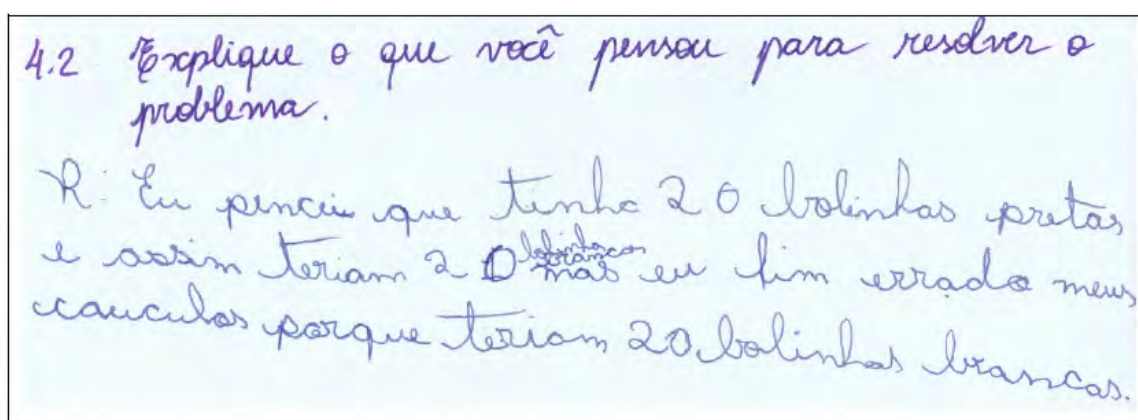 4.2 Explique o que você pensou para resolver o
problema.
R: Eu pencei que tinha 20 bolinhas pretas
e assim teriam 20 bolinhas brancas mas eu fim errado meus
caucculos porque teriam 20 bolinhas brancas.